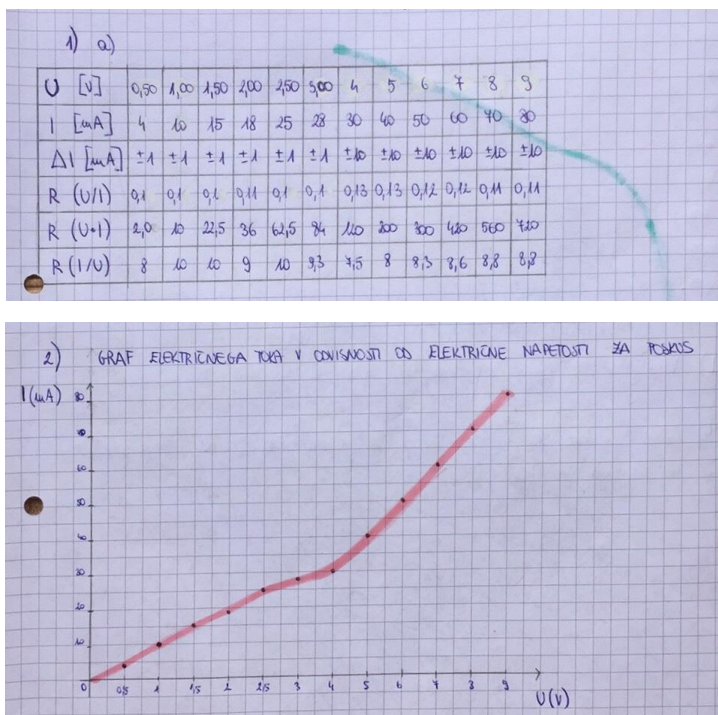 1) a)
U [V] 0,50 1,00 1,50 2,00 2,50 3,00 4 5 6 7 8 9
I [mA] 4 10 15 18 25 28 30 40 50 60 70 80
ΔI [mA] ±1 ±1 ±1 ±1 ±1 ±1 ±10 ±10 ±10 ±10 ±10 ±10
R (U/I) 0,1 0,1 0,1 0,11 0,1 0,1 0,13 0,13 0,12 0,12 0,11 0,11
R (U•I) 2,0 10 22,5 36 62,5 84 120 200 300 420 560 720
R (I/U) 8 10 10 9 10 9,3 7,5 8 8,3 8,6 8,8 8,8
2) GRAF ELEKTRIČNEGA TOKA V ODVISNOSTI OD ELEKTRIČNE NAPETOSTI ZA POSKUS
I (mA)
80
60
50
40
30
20
10
0 0,5 1 1,5 2 2,5 3 4 5 6 7 8 9
U (V)